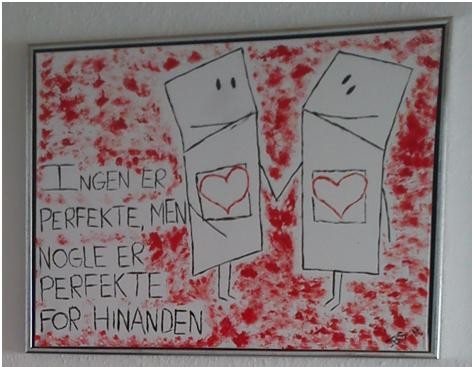 INGEN ER
PERFEKTE, MEN
NOGLE ER
PERFEKTE
FOR HINANDEN